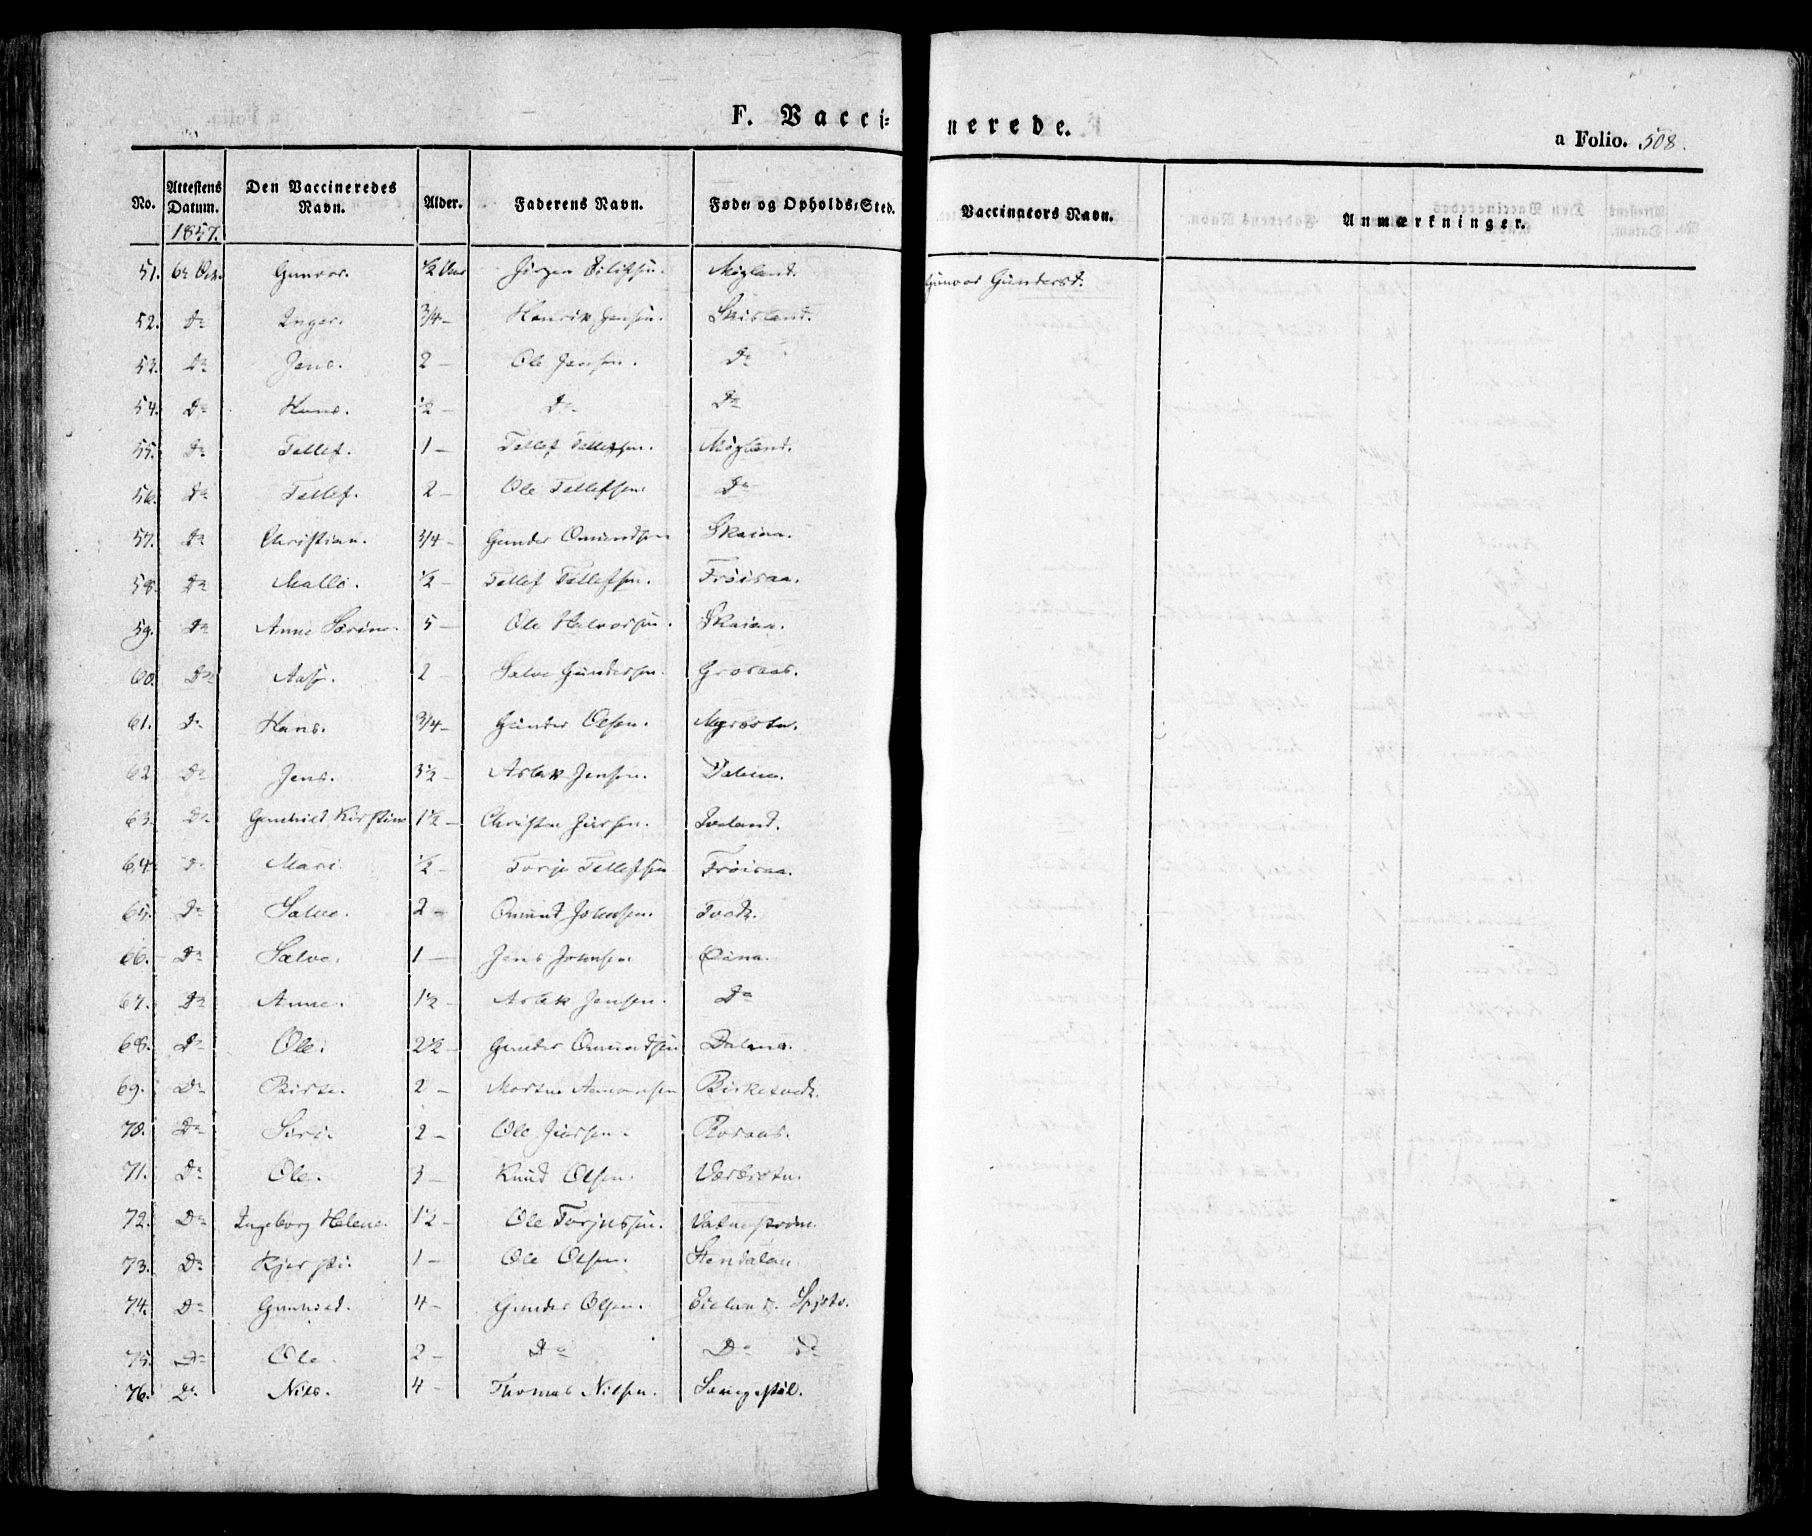 F. Vacci-
nerede.
a Folio. 508.
No. Attestens Datum. Den Vaccineredes Navn. Alder. Faderens Navn. Føde- og Opholds-Sted. Vaccinators Navn. Anmærkninger.
1857.
51. 6te Oct. Gunvor. 1/2 Aar Migland. Gunvor Gundersd.
52. Do Inger. 3/4 – Henrik Jensen. Skisland.
53. Do Jens. 2 – Ole Jensen. Do
54. Do Hans. 1/2 – Do Do
55. Do Tellef. 1 – Tellef Tellefsen. Møgland.
56. Do Tellef. 2 – Ole Tellefsen. Do
57. Do Christian. 3/4 – Gunder Omundsen Skaiaa.
58. Do Malle. 1/2 – Tellef Tellefsen. Frøisaa.
59. Do Anne Serine. 5 – Ole Halvorsen. Skaiaa.
60. Do Aase. 2 Salve Gundersen. Grosaas.
61. Do Hans. 3/4 – Gunder Olsen. Myrestu.
62 Do Jens. 3 1/2 – Aslak Jensen. Dalene.
63. Do Gunhild Kirstine 1 1/2 – Christen Jensen. Iveland.
64. Do Mari 1/2 – Torje Tellefsen Frøisaa.
65. Do Salve. 2 – Omund Johnsen. Tvedt.
66. Do Salve. 1 – Jens Johnsen. Øina.
67. Do Anne. 1 1/2 – Aslak Jensen. Do
68. Do Ole. 2 1/2 – Gunder Omundsen Dalene.
69. Do Birte. 2 – Morten Birketvedt.
70. Do Siri. 2 – Ole Rosaas.
71. Do Ole. 3 – Knud Olsen.
72. Do Ingeborg Helene. 1 1/2 – Ole Torjussen. Vatnestrøm.
73. Do Kjersti. 1 – Ole Olsen. Stendalen.
74. Do Gunnild. 4 – Gunder Olsen.
75. Do Ole. 2 – Do Do Do
76. Do Nils. 4 – Thomas Nilsen.